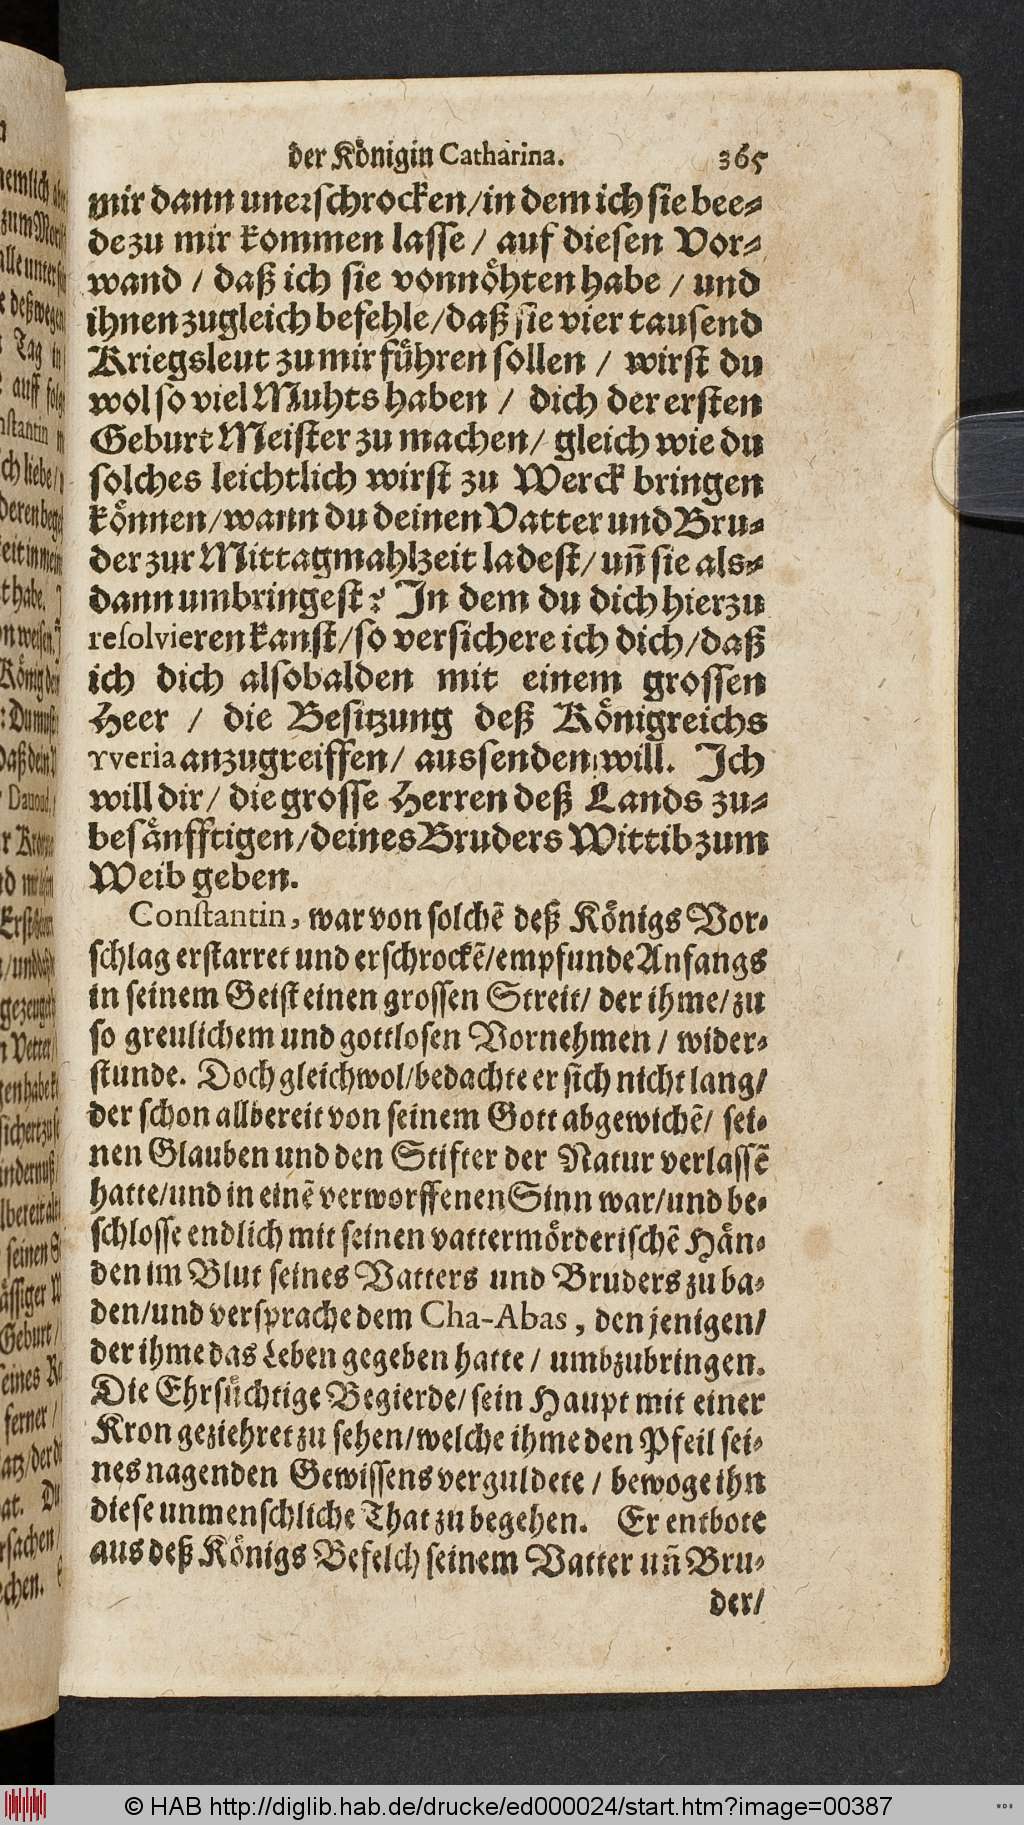 der Königin Catharina. 365
mir dann unerschrocken/in dem ich sie bee-
de zu mir kommen lasse / auf diesen Vor-
wand / daß ich sie vonnöhten habe / und
ihnen zugleich befehle/daß sie vier tausend
Kriegsleut zu mir führen sollen / wirst du
wol so viel Muhts haben / dich der ersten
Geburt Meister zu machen/ gleich wie du
solches leichtlich wirst zu Werck bringen
können/wann du deinen Vatter und Bru-
der zur Mittagmahlzeit ladest/ uñ sie als-
dann umbringest? In dem du dich hierzu
resolvieren kanst/so versichere ich dich/daß
ich dich alsobalden mit einem grossen
Heer / die Besitzung deß Königreichs
Yveria anzugreiffen/ aussenden will. Ich
will dir/ die grosse Herren deß Lands zu-
besänfftigen/deines Bruders Wittib zum
Weib geben.
Constantin, war von solchẽ deß Königs Vor-
schlag erstarret und erschrockẽ/empfunde Anfangs
in seinem Geist einen grossen Streit/ der ihme/zu
so greulichem und gottlosen Vornehmen / wider-
stunde. Doch gleichwol/bedachte er sich nicht lang/
der schon allbereit von seinem Gott abgewichẽ/ sei-
nen Glauben und den Stifter der Natur verlassẽ
hatte/und in einẽ verworffenen Sinn war/und be-
schlosse endlich mit seinen vattermörderischẽ Hän-
den im Blut seines Vatters und Bruders zu ba-
den/und versprache dem Cha-Abas, den jenigen/
der ihme das Leben gegeben hatte / umbzubringen.
Die Ehrsüchtige Begierde/ sein Haupt mit einer
Kron geziehret zu sehen/welche ihme den Pfeil sei-
nes nagenden Gewissens verguldete / bewoge ihn
diese unmenschliche That zu begehen. Er entbote
aus deß Königs Befelch seinem Vatter uñ Bru-
der/
© HAB http://diglib.hab.de/drucke/ed000024/start.htm?image=00387